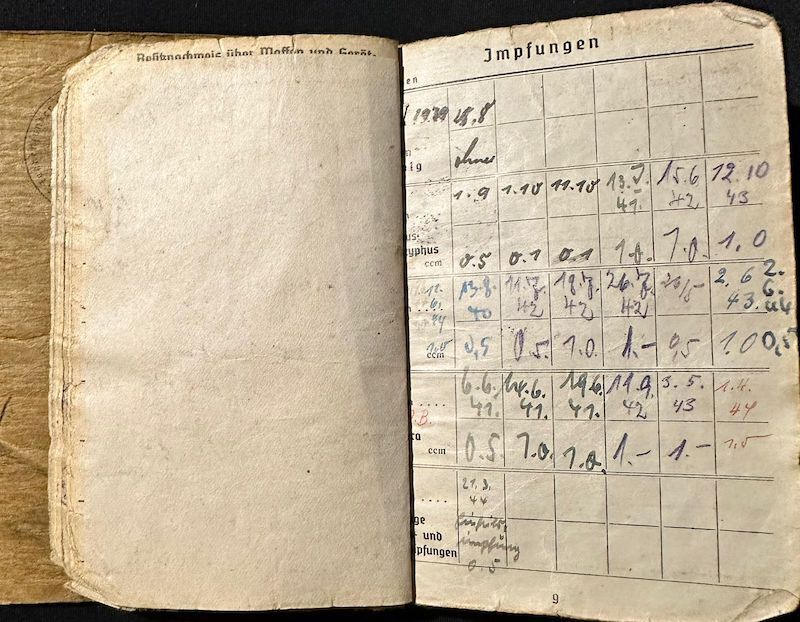 Besitznachweis über Waffen und Gerät-
Impfungen
en
1939 28.8
ig ohne
1.9 1.10 11.10 13.5. 15.6 12.10
41. 42 43
us-
yphus
ccm 0.5 0.1 0.1 1.0. 1.0. 1.0
13.8. 11.7. 18.7. 26.7. 2. 6 2.
40 42 42 42 43. 6.
44
1,5
ccm 0,5 0.5. 1.0. 1.- 0,5 1.0 0,5
6.6. 14.6. 19.6. 11.9. 3.5. 1.4.
.... 41. 41. 41. 42 43 44
ra
ccm 0.5 1.0. 1.0. 1.- 1.- 1.5
21.3.
.... 44
ge
und impfung
pfungen 0.5
9